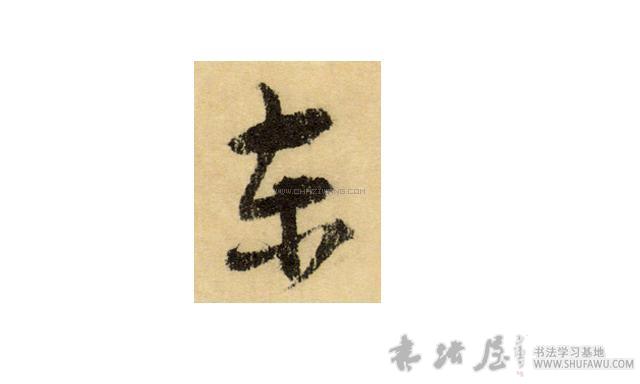 东
WWW.CHAZIWANG.COM
书法屋
书法学习基地
WWW.SHUFAWU.COM